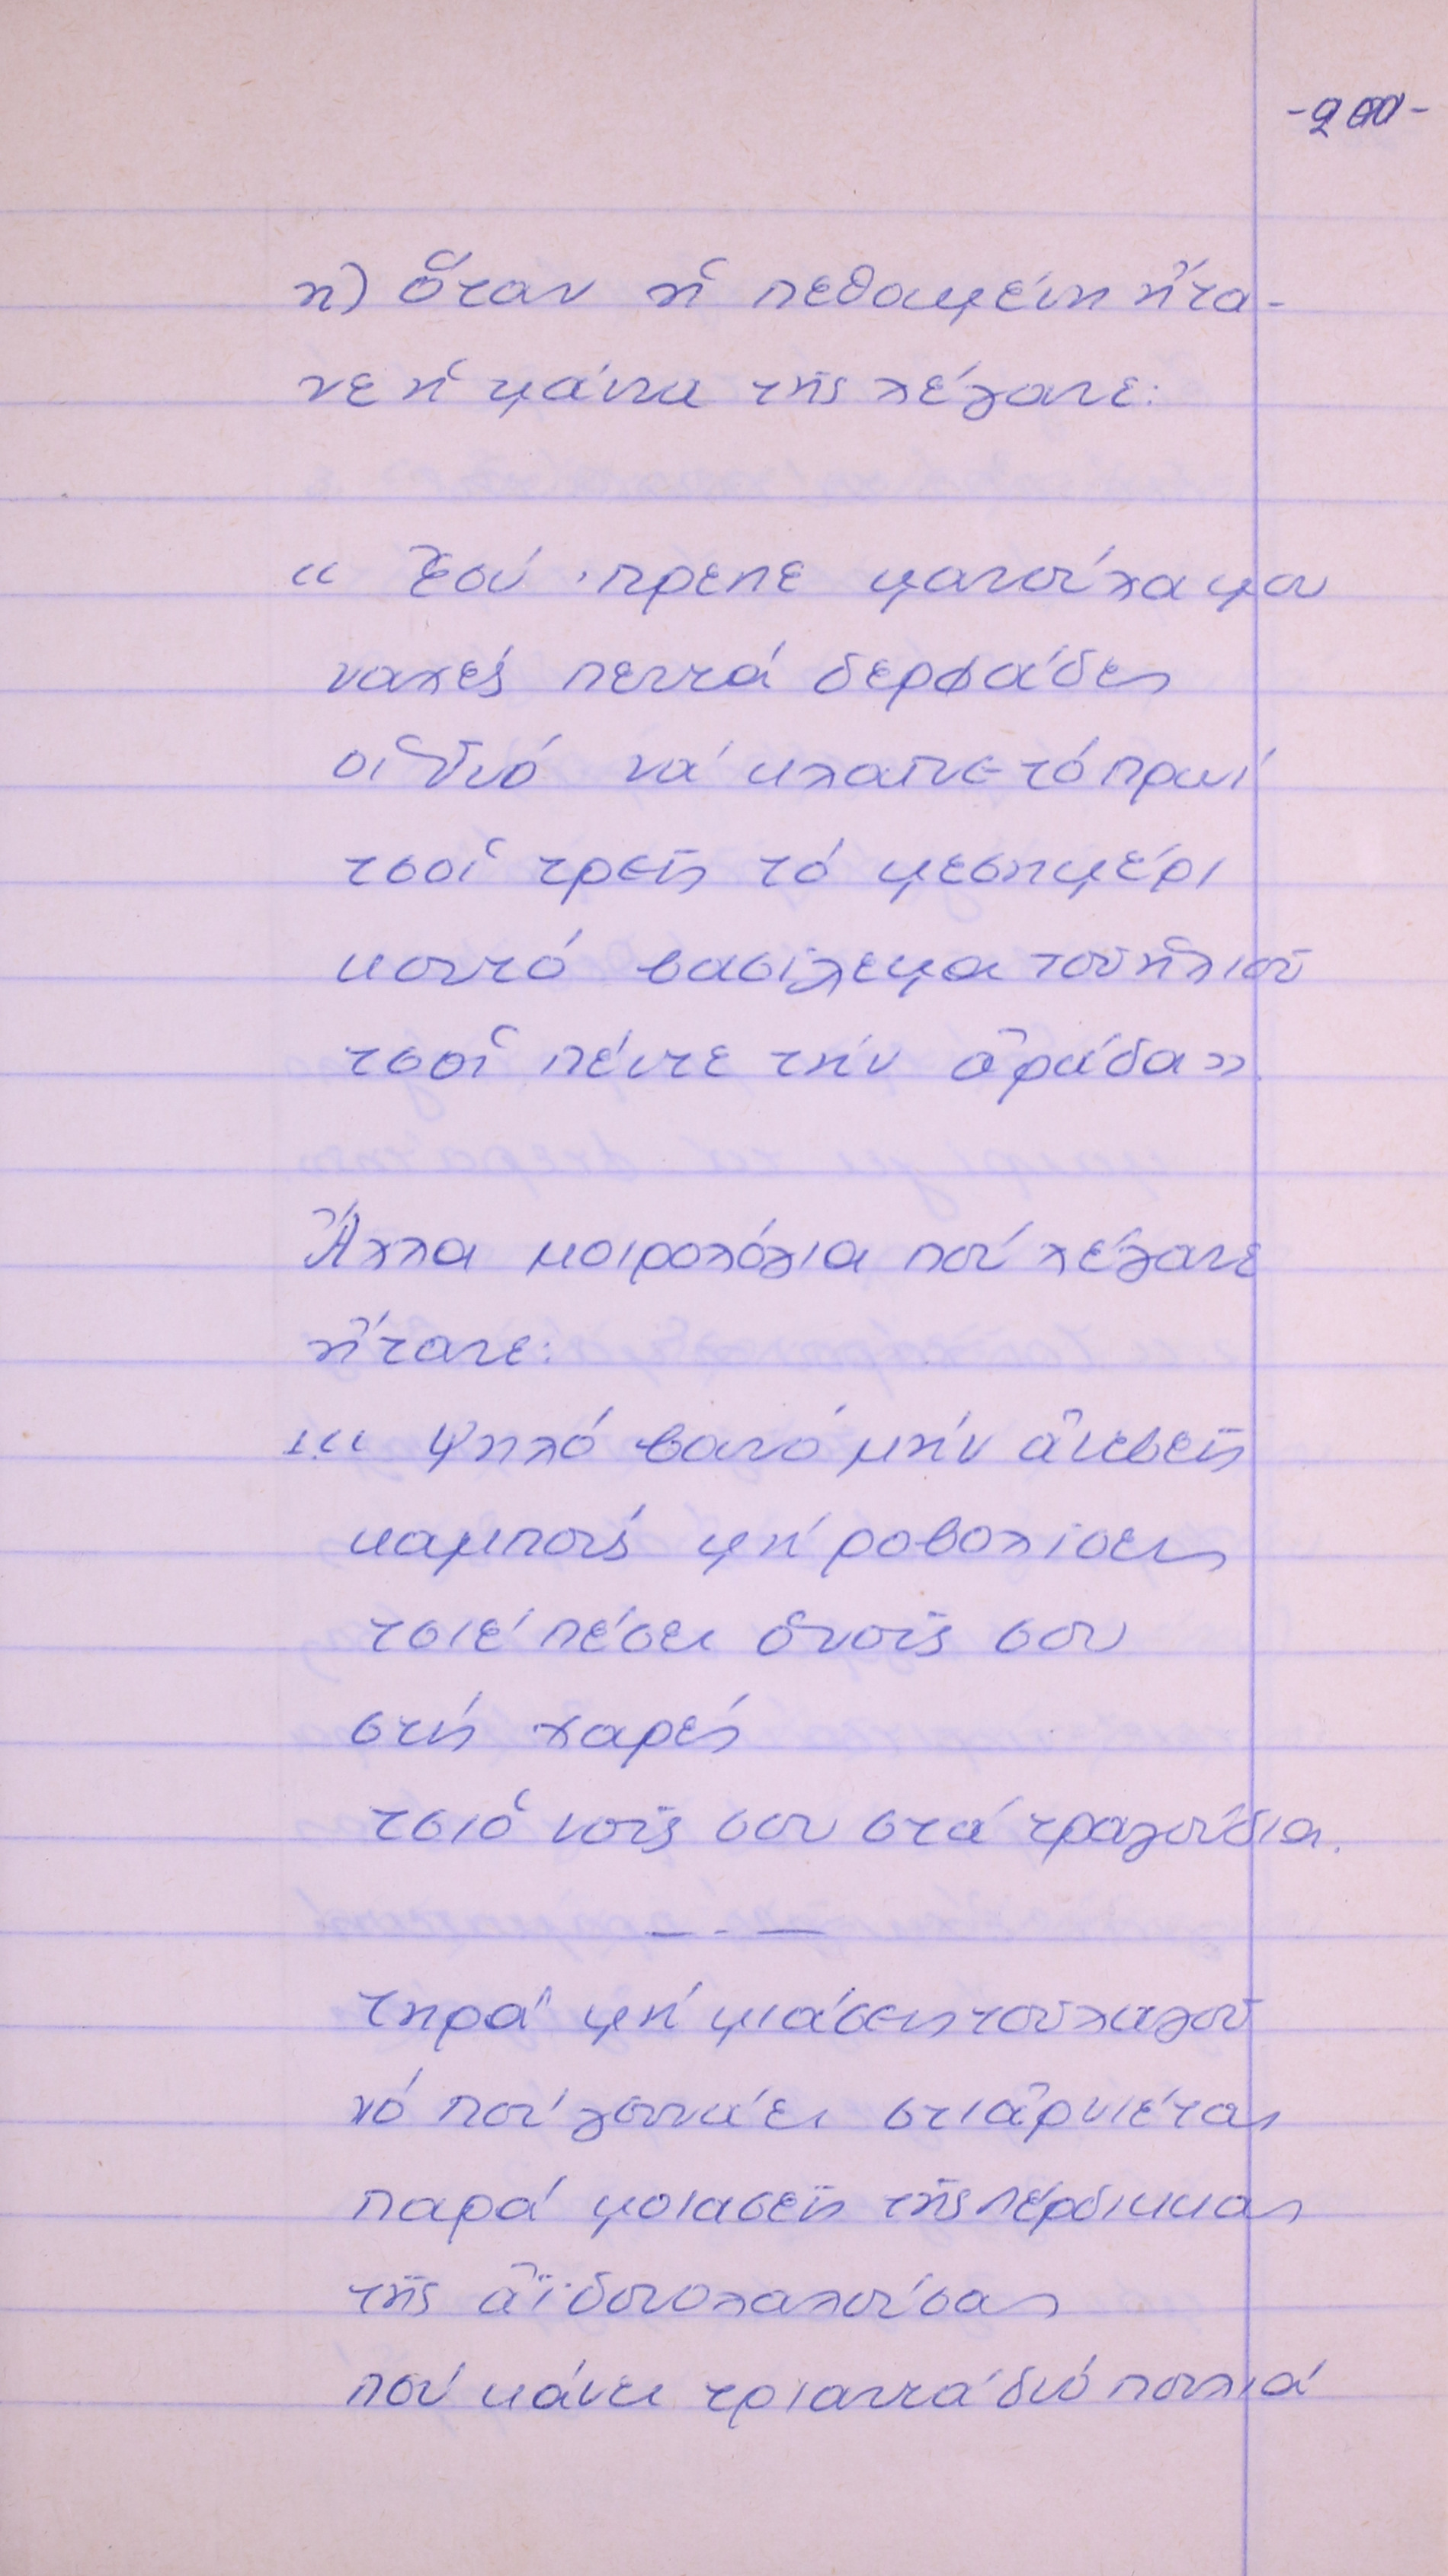 -200-
η) ὅταν ἡ πεθαμένη ἤτα-
νε ἡ μάνα τῆς λέγανε:
« Σού 'πρεπε μανούλα μου
ναχες πεντά δερφάδες
οἱ δυό νά κλαῖνε τό πρωί
τσοί τρεῖς τό μεσημέρι
κουτό βασίλεμα τοῦ ἥλιοῦ
τσοί πέντε τήν ἀράδα».
Ἄλλα μοιρολόγια πού λέγανε
ἤτανε:
1. « Ψηλό βουνό μήν ἀνεβεῖς
καμπούς μή ροβολίσεις
τσιέ πέσει ὁ νοῦς σου
στίς χαρές
τσιό νοῦς σου στά τραγούδια.
— . —
τηρά μή μιάσεις τοῦ λαγοῦ
νό πού γεννάει στιἀρνιέται
παρά μοιασεῖς τῆς πέρδικκας
τῆς ἀϊδονολαλούσας
πού κάνει τριαντά δυό πουλιά